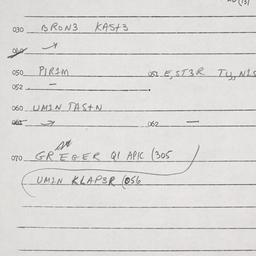 030 BRON3 KAST3
050 PIRIM 051 E,ST3R TU,,NIS
052 —
060 UMIN TASTN
062 —
070 GREGER QI APIC (305
UMIN KLAP3R (056